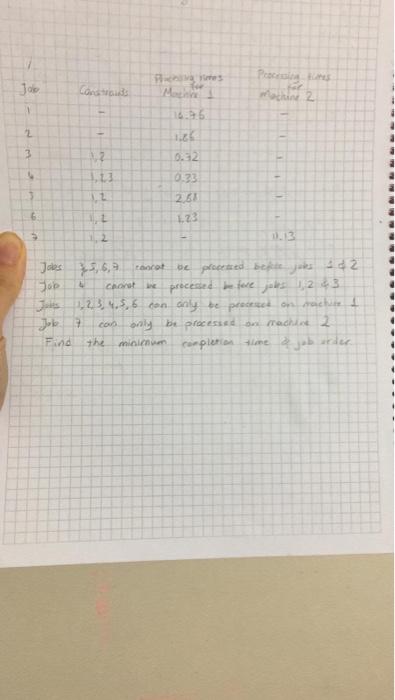 1.
Job Constraints Processing times for Machine 1 Processing times for machine 2
1 - 16.76 -
2 - 1.86 -
3 1,2 0.32 -
4 1,2,3 0.33 -
5 1,2 2.68 -
6 1,2 1.23 -
7 1,2 - 11.13
Jobs 3,5,6,7 cannot be processed before jobs 1 & 2
Job 4 cannot be processed before jobs 1,2 & 3
Jobs 1,2,3,4,5,6 can only be processed on machine 1
Job 7 can only be processed on machine 2
Find the minimum completion time & job order